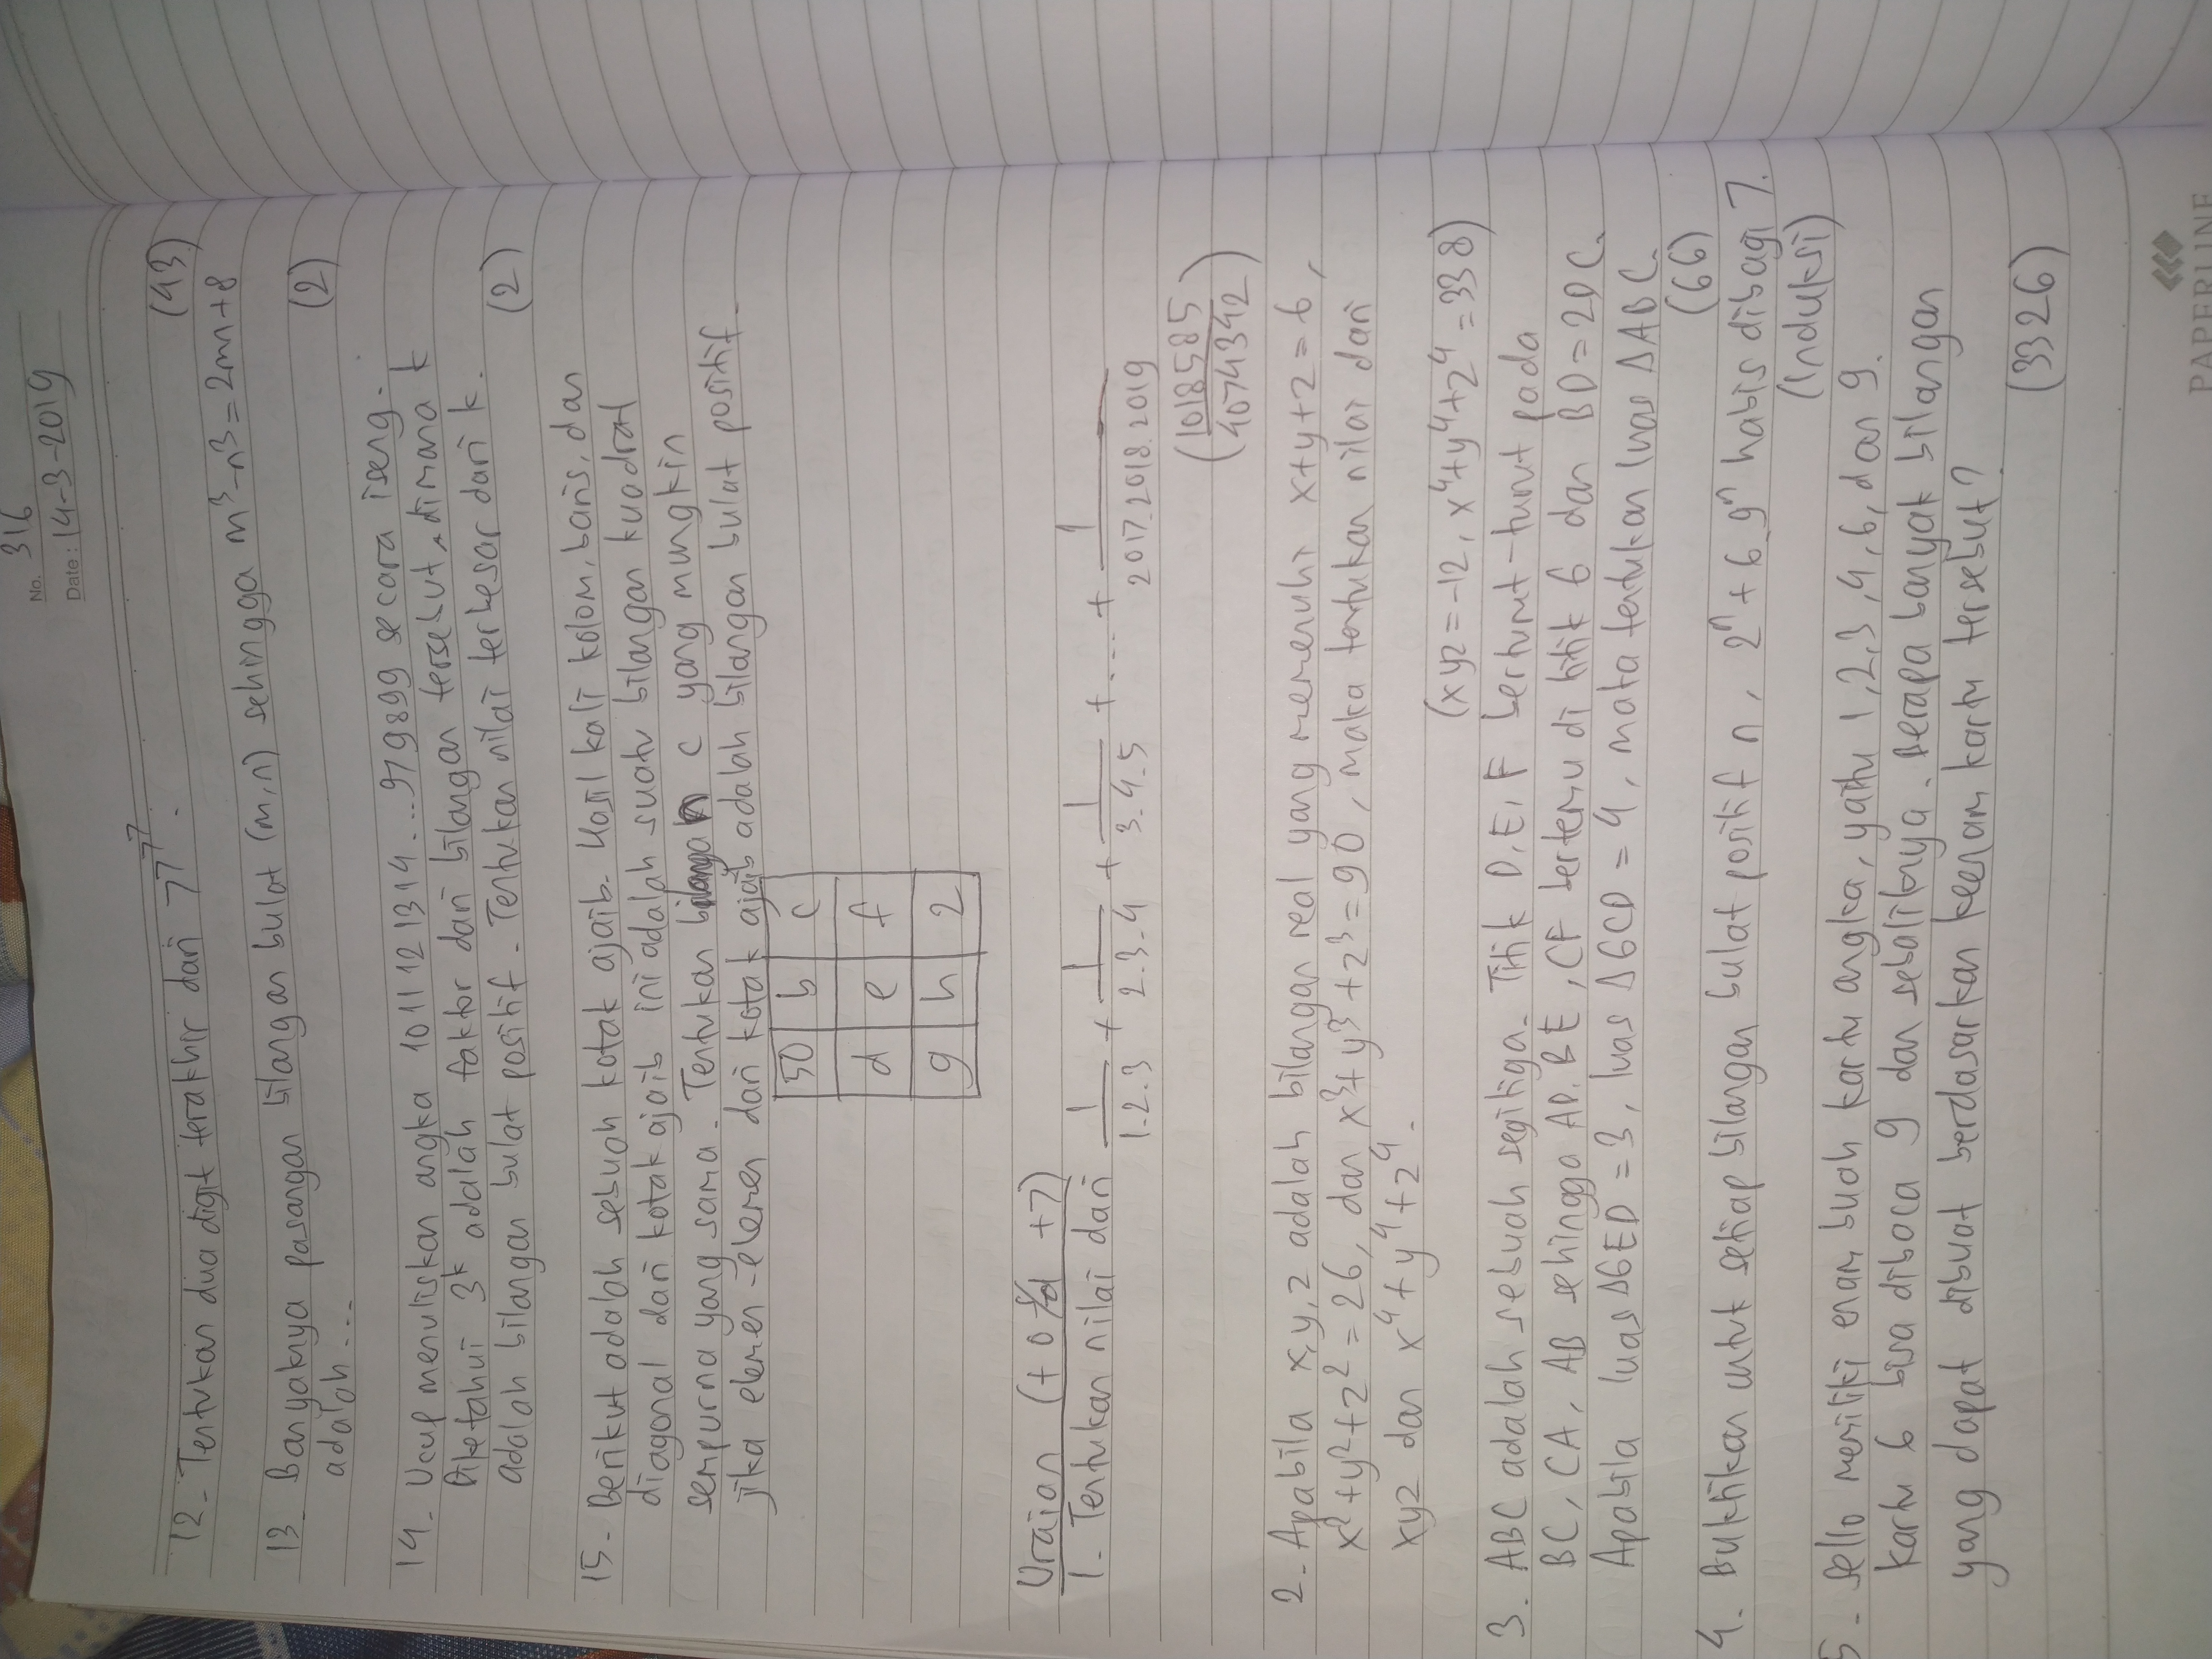 No. 316
Date : 14-3-2019
12. Tentukan dua digit terakhir dari 7^7^7^7.
(43)
13. Banyaknya pasangan bilangan bulat (m,n) sehingga m³-n³=2mn+8
adalah...
(2)
14. Ucup menuliskan angka 1011121314...979899 secara iseng.
Diketahui 3^k adalah faktor dari bilangan tersebut, dimana k
adalah bilangan bulat positif. Tentukan nilai terbesar dari k.
(2)
15. Berikut adalah sebuah kotak ajaib. Hasil kali kolom, baris, dan
diagonal dari kotak ajaib ini adalah suatu bilangan kuadrat
sempurna yang sama. Tentukan bilangan c yang mungkin
jika elemen-elemen dari kotak ajaib adalah bilangan bulat positif.
50 b c
d e f
g h 2
Uraian (+0 s/d +7)
1. Tentukan nilai dari 1/1.2.3 + 1/2.3.4 + 1/3.4.5 +...+ 1/2017.2018.2019
(1018585/4074342)
2. Apabila x,y,z adalah bilangan real yang memenuhi x+y+z=6,
x²+y²+z²=26, dan x³+y³+z³=90, maka tentukan nilai dari
xyz dan x⁴+y⁴+z⁴.
(xyz=-12, x⁴+y⁴+z⁴=338)
3. ABC adalah sebuah segitiga. Titik D,E,F berturut-turut pada
BC, CA, AB sehingga AD, BE, CF bertemu di titik G dan BD=2DC.
Apabila luas ΔGED=3, luas ΔGCD=4, maka tentukan luas ΔABC.
(66)
4. Buktikan untuk setiap bilangan bulat positif n, 2ⁿ+6.9ⁿ habis dibagi 7.
(Induksi)
5. Sello memiliki enam buah kartu angka, yaitu 1,2,3,4,6, dan 9.
Kartu 6 bisa dibaca 9 dan sebaliknya. Berapa banyak bilangan
yang dapat dibuat berdasarkan keenam kartu tersebut?
(3326)
PAPERLINE